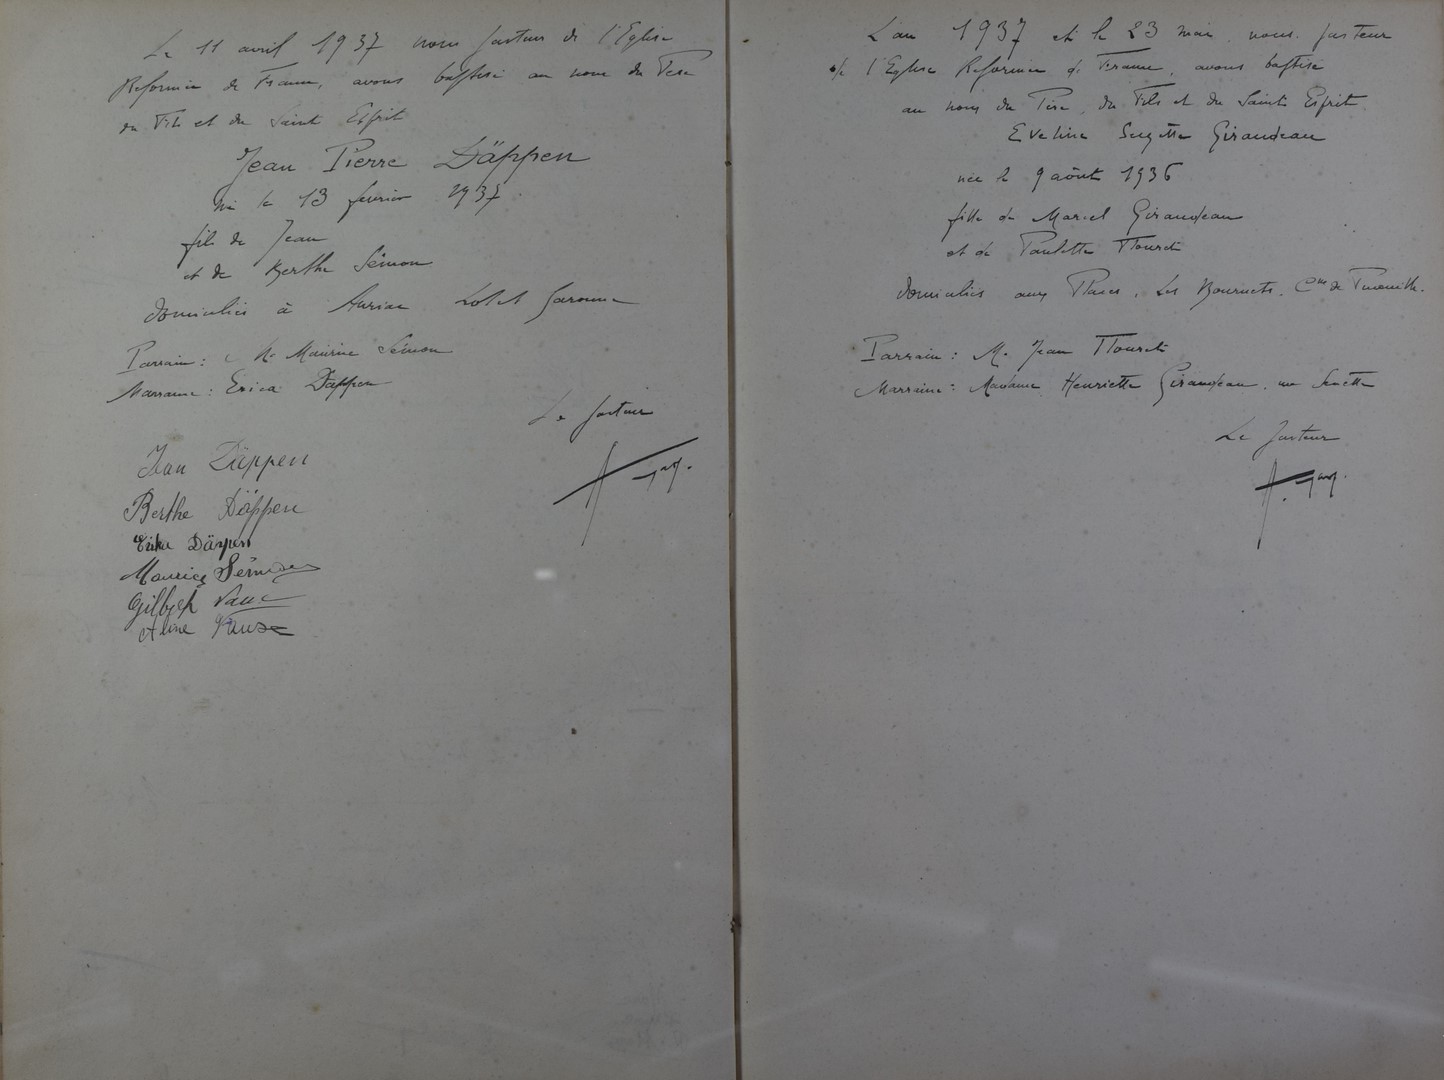 Le 11 avril 1937 nous pasteur de l'Eglise
Reformée de France, avons baptisé au nom du Pere
du Fils et du Saint Esprit
Jean Pierre Däppen
né le 13 fevrier 1937
fils de Jean
et de Berthe Sémon
domiciliés à Auriac Lot et Garonne
Parrain : Mr Maurice Sémon
Marraine : Erica Däppen
Le pasteur
Jean Däppen
Berthe Däppen
Erika Däppen
Maurice
Aline
L'an 1937 et le 23 mai nous pasteur
de l'Eglise Reformée de France, avons baptisé
au nom du Père, du Fils et du Saint Esprit
Eveline Suzette Giraudeau
née le 9 août 1936
fille de Marcel Giraudeau
et de Paulette
domiciliés aux Les Cne de
Parrain : M. Jean
Marraine : Madame Henriette Giraudeau née
Le pasteur